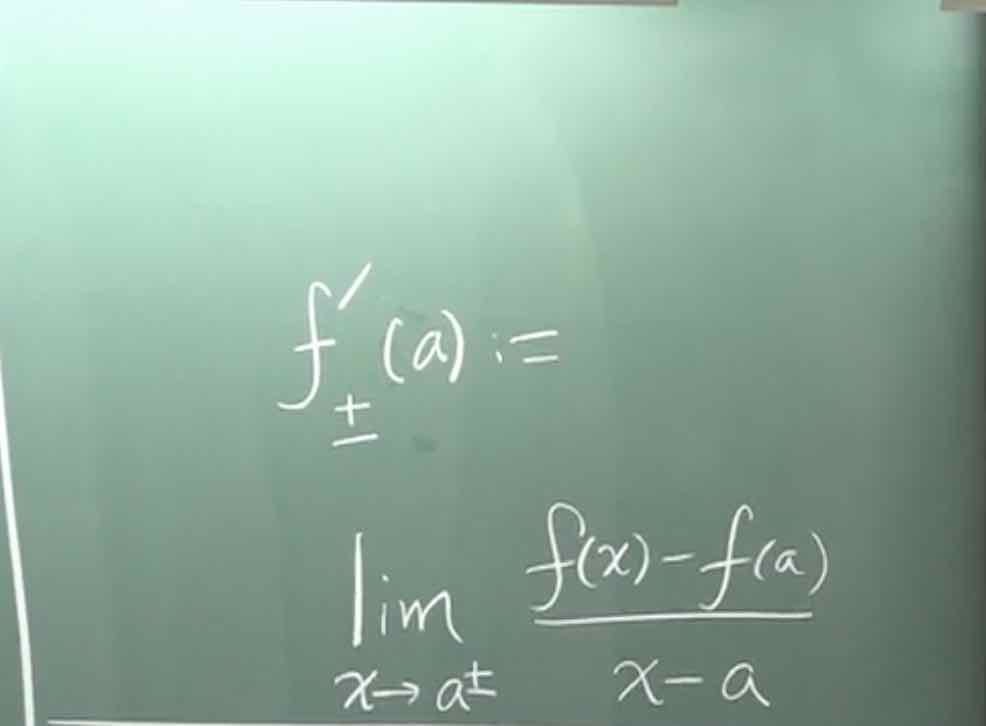 f'±(a) :=
lim x→a± (f(x)-f(a))/(x-a)